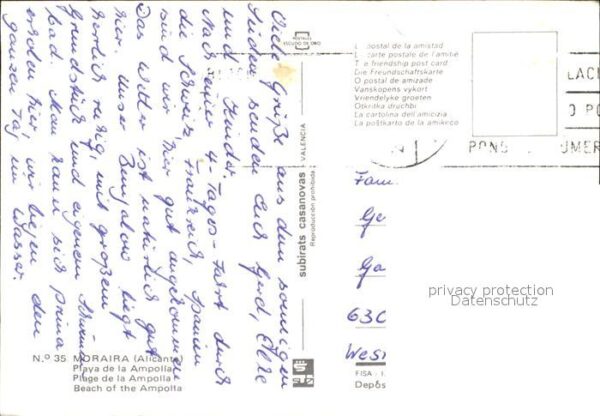 Viele Grüße aus dem sonnigen
Süden senden Euch Gerd,
und Kinder.
Nach einer 4-Tages-Fahrt durch
die Schweiz, Frankreich, Spanien
sind wir hier gut angekommen
Das Wetter ist natürlich gut
hier. Unser Bungalow liegt
herrlich ruhig, mit großem
Grundstück und eigenem Schwimm-
bad. Man kann sich prima
erholen hier, wir liegen den
ganzen Tag im Wasser.
N.º 35 MORAIRA (Alicante)
Playa de la Ampolla
Plage de la Ampolla
Beach of the Ampolla
subirats casanovas - VALENCIA
Reproducción prohibida
POSTALES
ESCUDO DE ORO
La postal de la amistad
La carte postale de l'amitié
The friendship post card
Die Freundschaftskarte
O postal de amizade
Vanskopens vykort
Vriendelyke groeten
Otkritka druchbi
La cartolina dell'amicizia
La poŝtkarto de la amikeco
LACI
O PO
PONS
UMER
Fam.
Ge
Ga
630
Wes
privacy protection
Datenschutz
FISA - I.
Depós